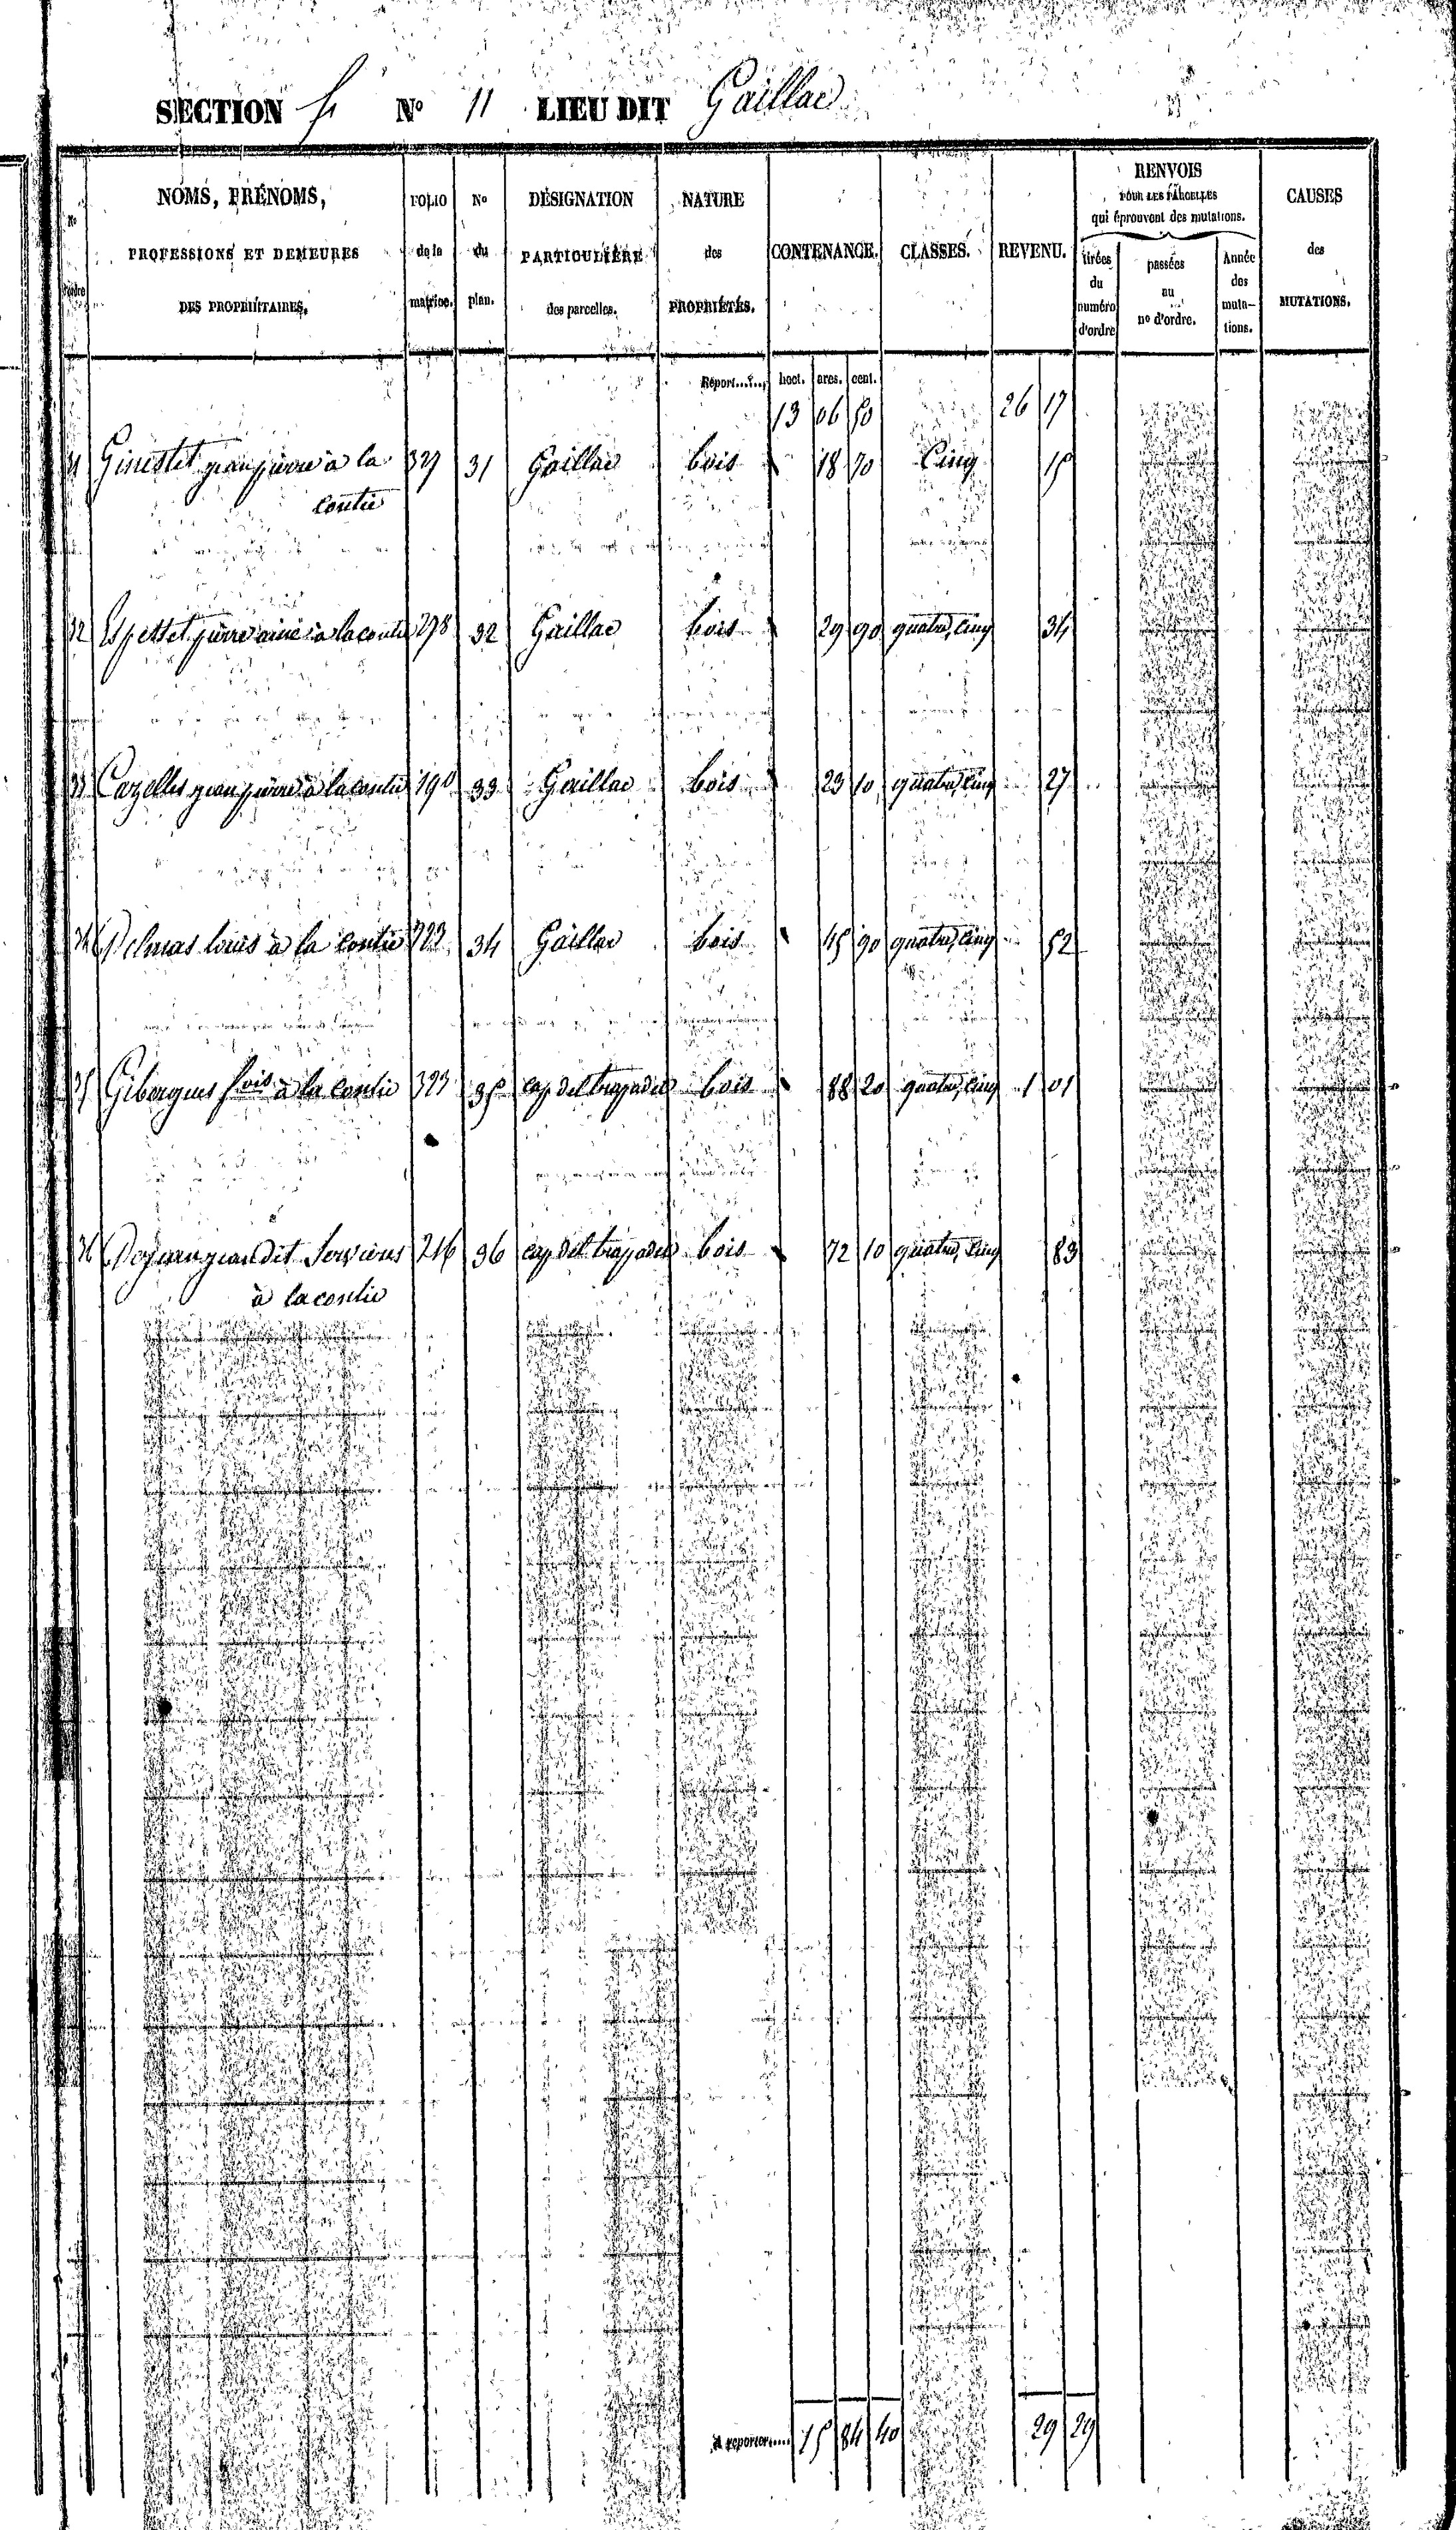 SECTION F N° 11 LIEU DIT Gaillac
N° d'ordre
NOMS, PRÉNOMS,
PROFESSIONS ET DEMEURES
DES PROPRIÉTAIRES.
FOLIO
de la
matrice.
N°
du
plan.
DÉSIGNATION
PARTICULIÈRE
des parcelles.
NATURE
des
PROPRIÉTÉS.
CONTENANCE.
CLASSES.
REVENU.
RENVOIS
POUR LES PARCELLES
qui éprouvent des mutations.
tirées
du
numéro
d'ordre
passées
au
n° d'ordre.
Année
des
muta-
tions.
CAUSES
des
MUTATIONS.
Report...... hect. ares. cent.
13 06 50 26 17
31 Ginestet jean pierre à la 327 31 Gaillac bois 18 70 Cinq 15
contie
32 Espettet pierre ainé à la contie 278 32 Gaillac bois 29 90 quatre, cinq 34
33 Cazelles jean pierre à la contie 190 33 Gaillac bois 23 10 quatre, cinq 27
34 Delmas louis à la contie 223 34 Gaillac bois 45 90 quatre, cinq 52
35 Gibergues fois à la contie 323 35 cap del trajadis bois 88 20 quatre, cinq 1 01
36 jean dit Servieres 216 36 cap del trajadis bois 72 10 quatre, cinq 83
à la contie
A reporter..... 15 84 40 29 29